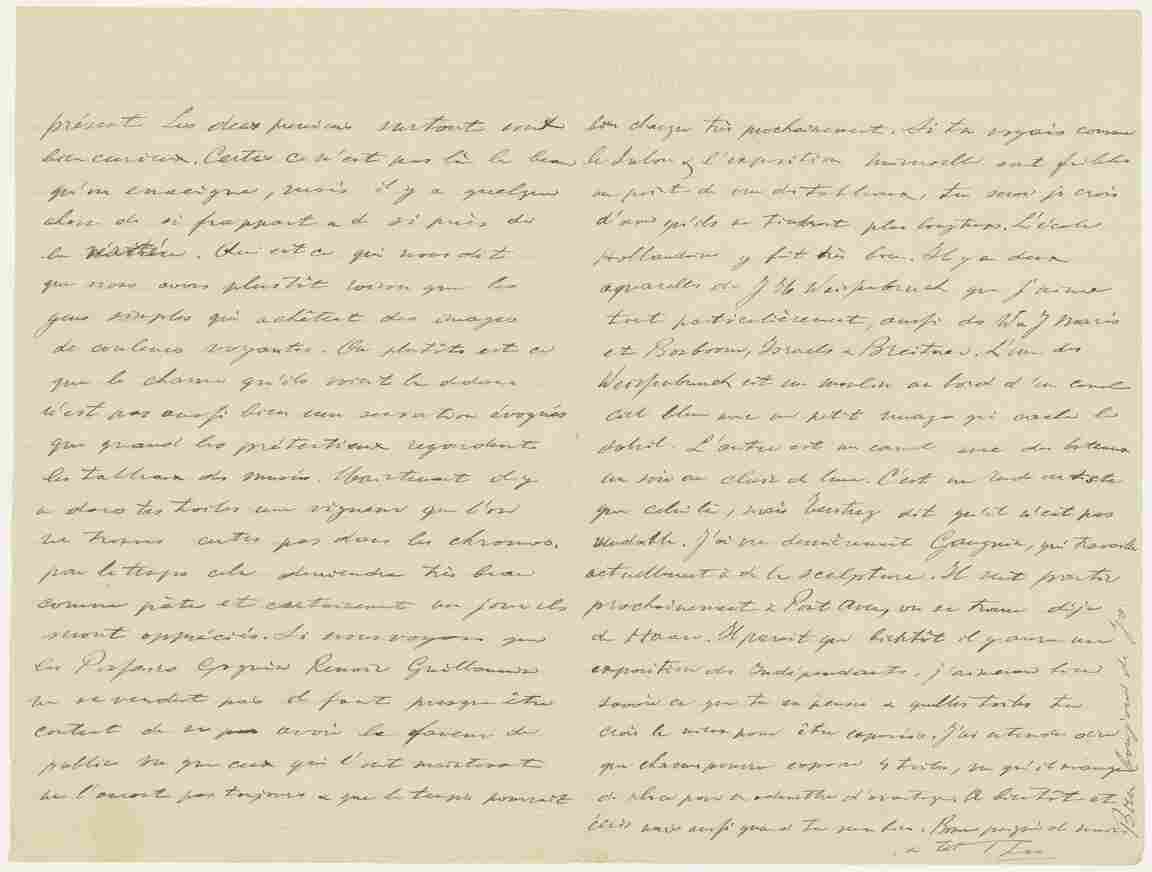 présent Les deux premiers surtout sont
bien curieux. Certes ce n'est pas là le beau
qu'on enseigne, mais il y a quelque
chose de si frappant et de si près de
la vérité. Qu'est ce qui nous dit
que nous avons plustôt raison que les
gens simples qui achètent des images
de couleurs voyantes. Ou plutôts est ce
que le charme qu'ils voient la dedans
n'est pas aussi bien une sensation évoquée
que quand les prétentieux regardent
les tableaux des musées. Maintenant il y
a dans tes toiles une vigueur que l'on
ne trouve certes pas dans les chromos,
par le temps cela deviendra très beau
comme pâte et certainement un jour ils
seront appréciés. Si nous voyons que
les Pissarro Gauguin Renoir Guillaumin
ne se vendent pas il faut presque être
content de ne pas avoir la faveur du
public vu que ceux qui l'ont maintenant
ne l'auront pas toujours & que le temps pourrait
bien changer très prochainement. Si tu voyais comme
le Salon & l'exposition universelle sont faibles
au point de vue des tableaux, tu serais je crois
d'avis qu'ils ne tiendront plus longtemps. L'école
Hollandaise y fait très bien. Il y a deux
aquarelles de J H Weissenbruch que j'aime
tout particulièrement, aussi des W & J Maris
et Bosboom, Israels & Breitner. L'un des
Weissenbruch est un moulin au bord d'un canal
ciel bleu avec un petit nuage qui cache le
soleil. L'autre est un canal avec des bateaux
un soir au clair de lune. C'est un rude artiste
que celui la, mais Tersteeg dit qu'il n'est pas
vendable. J'ai vu dernièrement Gauguin, qui travaille
actuellement à de la sculpture. Il veut partir
prochainement à Pont Aven, où se trouve déja
de Haan. Il parait que bientôt il y aura une
exposition des Indépendants. j'aimerais bien
savoir ce que tu en penses & quelles toiles tu
crois le mieux pour être exposées. J'ai entendu dire
que chacun pourra exposer 4 toiles, vu qu'il manque
de place pour en admettre d'avantage. A bientôt et
écris mais aussi quand tu seras bien. Bonne poignée de mains
à toi Theo
Bien bonjour de Jo